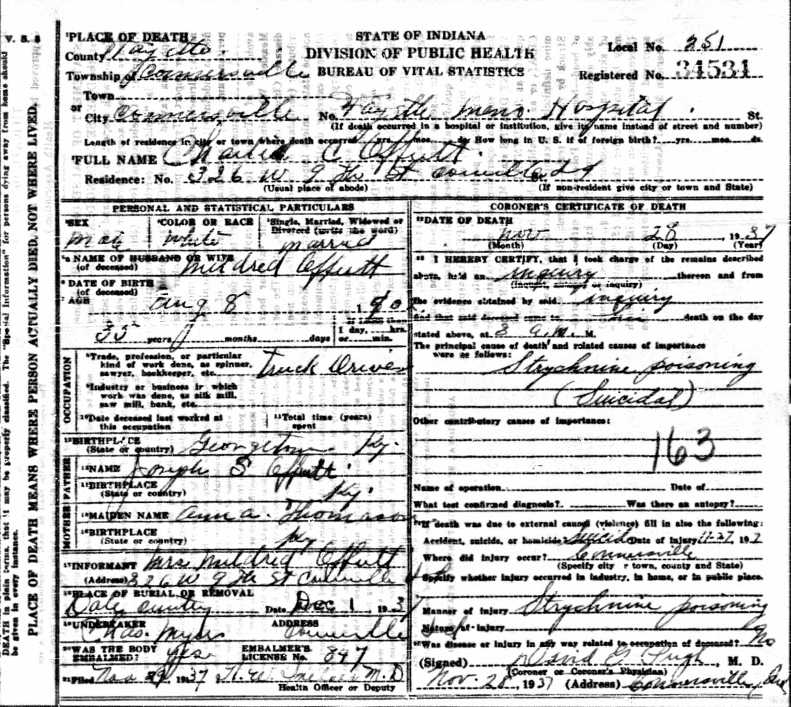 V. S. 5
PLACE OF DEATH
STATE OF INDIANA
DIVISION OF PUBLIC HEALTH
BUREAU OF VITAL STATISTICS
Local No. 251
Registered No. 34534
County Fayette
Township of Connersville
Town
or
City Connersville No. Fayette Mem Hospital St.
(If death occurred in a hospital or institution, give its name instead of street and number)
Length of residence in city or town where death occurred yrs. mos. ds. How long in U. S. if of foreign birth? yrs. mos. ds.
FULL NAME C Offutt
Residence: No. 326 W 9 th St
(Usual place of abode) (If non-resident give city or town and State)
PERSONAL AND STATISTICAL PARTICULARS
SEX COLOR OR RACE Single, Married, Widowed or Divorced (write the word)
male white married
NAME OF HUSBAND OR WIFE (of deceased) Mildred Offutt
DATE OF BIRTH (of deceased) Aug 8
AGE 35 years months days
1 day, hrs. or min.
OCCUPATION
Trade, profession, or particular kind of work done, as spinner, sawyer, bookkeeper, etc. Truck Driver
Industry or business in which work was done, as silk mill, saw mill, bank, etc.
Date deceased last worked at this occupation
Total time (years) spent
BIRTHPLACE (State or country) Georgetown Ky.
FATHER
NAME Joseph S Offutt
BIRTHPLACE (State or country) Ky.
MOTHER
MAIDEN NAME Ann A. Thomason
BIRTHPLACE (State or country) Ky
INFORMANT Mrs Mildred Offutt
(Address) 326 W 9 th St
PLACE OF BURIAL OR REMOVAL
Dale Cemetery Date Dec 1, 1937
UNDERTAKER ADDRESS
Chas. Myers
WAS THE BODY EMBALMED? yes EMBALMER'S LICENSE No. 847
Filed Nov 29, 1937 M.D
Health Officer or Deputy
CORONER'S CERTIFICATE OF DEATH
DATE OF DEATH
Nov 28, 1937
(Month) (Day) (Year)
I HEREBY CERTIFY, that I took charge of the remains described
above, held an inquiry thereon and from
(inquest, autopsy or inquiry)
the evidence obtained by said inquiry
find that said deceased came to death on the day
stated above, at 8 A.M. M.
The principal cause of death and related causes of importance
were as follows:
Strychnine poisoning
(Suicidal)
Other contributory causes of importance:
163
Name of operation Date of
What test confirmed diagnosis? Was there an autopsy?
If death was due to external causes (violence) fill in also the following:
Accident, suicide, or homicide? Suicide Date of injury 11-27, 1937
Where did injury occur? Connersville
(Specify city or town, county and State)
Specify whether injury occurred in industry, in home, or in public place.
Manner of injury Strychnine poisoning
Nature of injury
Was disease or injury in any way related to occupation of deceased? No
(Signed) M. D.
(Coroner or Coroner's Physician)
Nov. 28, 1937 (Address) Connersville, Ind
PLACE OF DEATH MEANS WHERE PERSON ACTUALLY DIED, NOT WHERE LIVED.
DEATH in plain terms, that it may be properly classified. The "Special Information" for persons dying away from home should
be given in every instance.